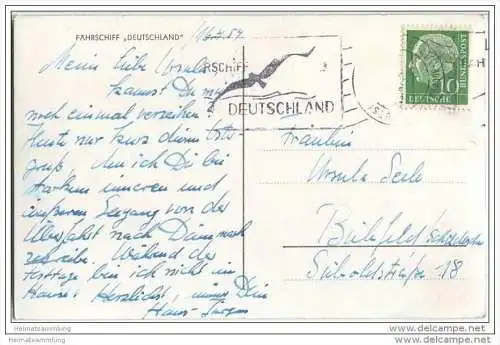 FÄHRSCHIFF „DEUTSCHLAND"
Meine liebe Ursula
kannst Du mir
noch einmal verzeihen?
Heute nur kurz diesen
gruß, den ich Dir bei
starkem inneren und
äußerem Seegang von der
Überfahrt nach Dänemark
schreibe. Während der
Festtage bin ich nicht im
Hause! Herzlichst, immer Dein
Hans-Jürgen
RSCHIFF
DEUTSCHLAND
10
DEUTSCHE
BUNDESPOST
Fräulein
Ursula
Bielefeld
Sieboldstraße 18
Heimatsammlung
Heimatsammlung
http://heimatsammlung.delcampe.net